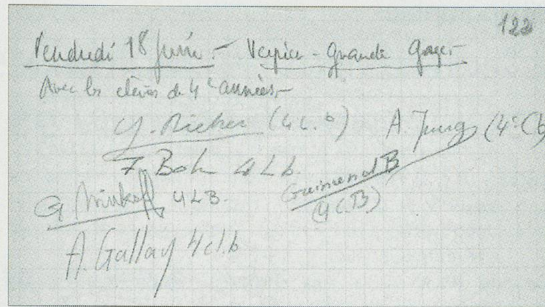 122
Vendredi 18 Juin.- Veyrier - Grande Gorge-
Avec les élèves de 4e années,-
Y. Richer (4 c. b)
A. Jung (4e Cb)
F. Boh 4 L b.
Guimend B
(4 C.B)
G 4 L B.
A. Gallay 4 cl.b